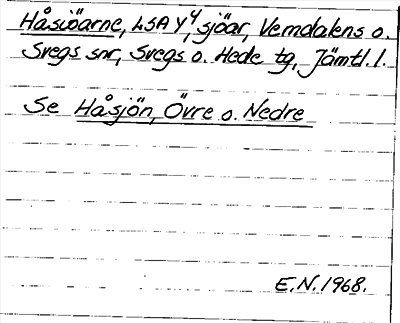 Håsjöarne, LSA Y4, sjöar, Vemdalens o.
Svegs snr, Svegs o. Hede tg, Jämtl. l.
Se Håsjön, Övre o. Nedre
E.N. 1968.